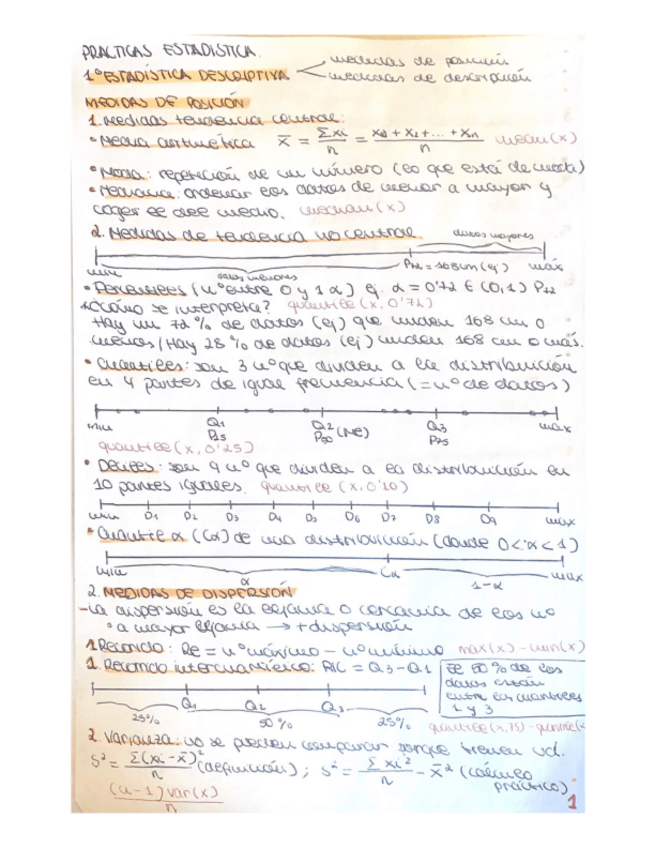 PRACTICAS ESTADISTICA.
medidas de posición
1º ESTADÍSTICA DESCRIPTIVA
medidas de descripción
MEDIDAS DE POSICIÓN
1. Medidas tendencia central:
• Media aritmética x̄ = Σxi / n = x1 + x2 + ... + xn / n mean(x)
• Moda: repetición de un número (lo que está de moda)
• Mediana: ordenar los datos de menor a mayor y
coger el del medio. median(x)
2. Medidas de tendencia no central datos mayores
min datos menores P72 = 168cm (ej) máx
• Percentiles (nº entre 0 y 1 α) ej. α = 0'72 ∈ (0,1) P72
¿Cómo se interpreta? quantile (x, 0'72)
Hay un 72% de datos (ej) que miden 168 cm o
menos / Hay 28% de datos (ej) miden 168 cm o más.
• Cuartiles: son 3 nº que dividen a la distribución
en 4 partes de igual frecuencia (= nº de datos)
min Q1 Q2 Q3 max
P25 P50 (Me) P75
quantile (x, 0'25)
• Deciles: son 9 nº que dividen a la distribución en
10 partes iguales. quantile (x, 0'10)
min D1 D2 D3 D4 D5 D6 D7 D8 D9 max
• Cuantil α (Cα) de una distribución (donde 0 < α < 1)
min α Cα 1-α max
2. MEDIDAS DE DISPERSIÓN
- La dispersión es la lejanía o cercanía de los nº
° a mayor lejanía → + dispersión
1 Recorrido: Re = nº máximo - nº mínimo max(x) - min(x)
1. Recorrido intercuartílico: RIC = Q3 - Q1
El 50% de los
datos están
entre los cuartiles
1 y 3
Q1 Q2 Q3
25% 50% 25% quantile(x,75) - quantile(x
2. Varianza: no se pueden comparar porque tienen ud.
S² = Σ(xi - x̄)² / n (definición); S² = Σxi² / n - x̄² (cálculo
práctico)
(n-1) var(x) / n
1